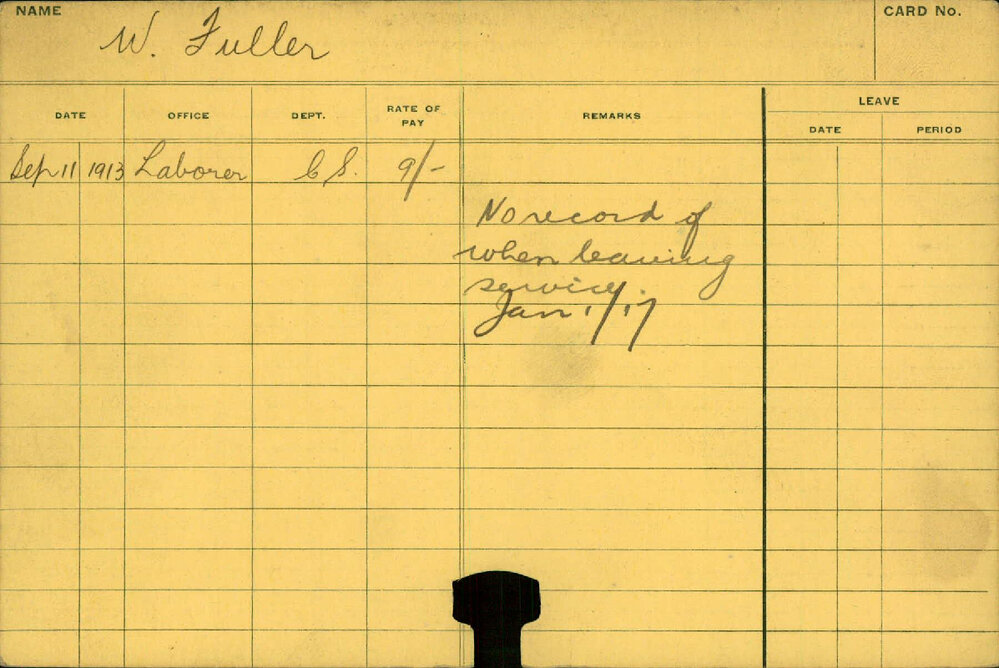 NAME
W. Fuller
CARD No.
DATE OFFICE DEPT. RATE OF PAY REMARKS LEAVE
DATE PERIOD
Sep 11 1913 Laborer C S. 9/-
No record of
when leaving
service.
Jan 1/17